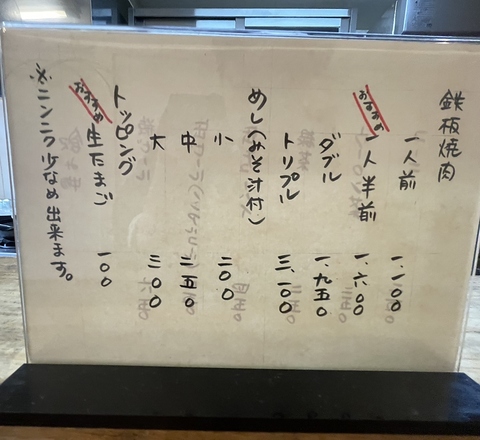 鉄板焼肉
一人前 一、一〇〇
おすすめ 一人半前 一、六〇〇
ダブル 一、九五〇
トリプル 三、一〇〇
めし(みそ汁付)
小 二〇〇
中 二五〇
大 三〇〇
トッピング
おすすめ 生たまご 一〇〇
※ニンニク少なめ出来ます。